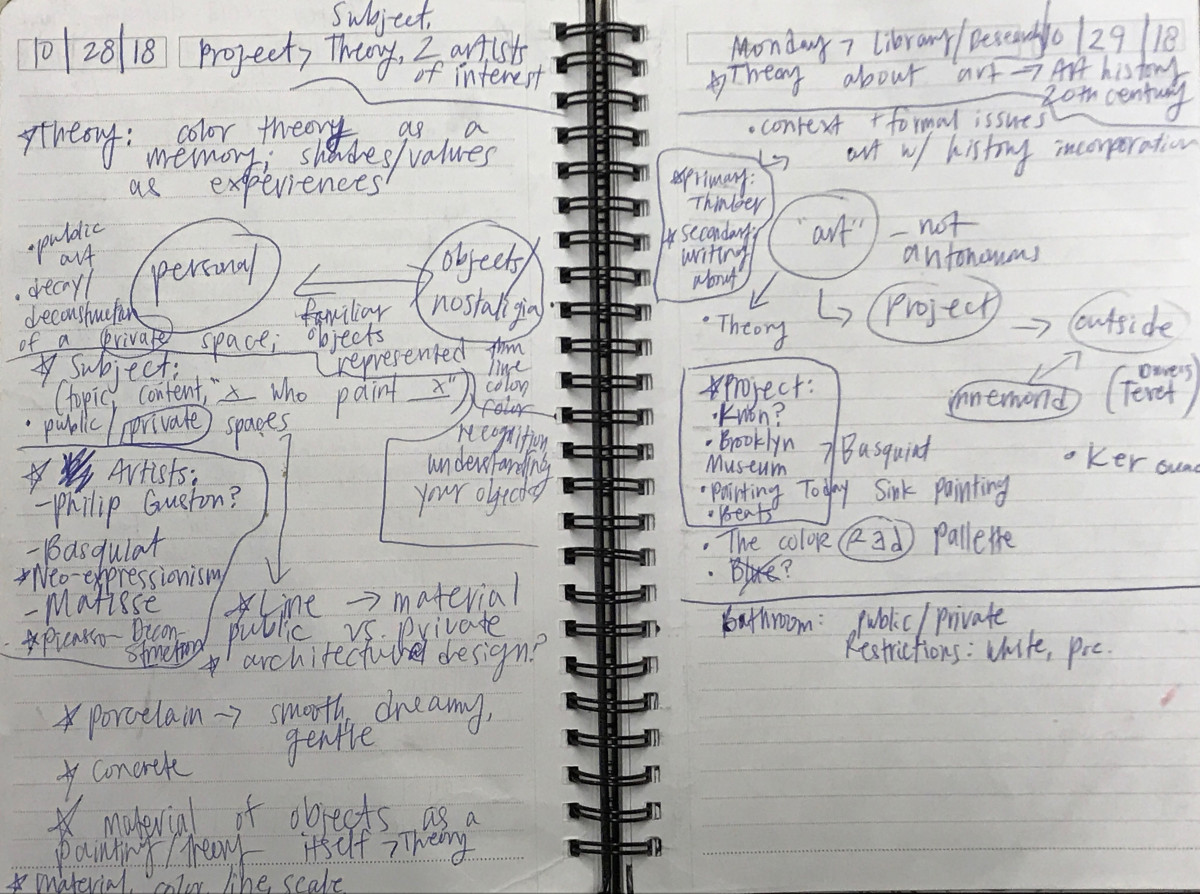 10 | 28 | 18
Subject,
Project → Theory, 2 artists
of interest
*Theory: color theory as a
memory; shades/values
as experiences
• public
art
• decay/
deconstruction
of a private space;
personal
objects/
nostalgia
familiar
objects
represented
* Subject:
(topic, content, "x who paint x")
• public / private spaces
line
color
recognition
understanding
your objects
* Artists:
- Philip Guston?
- Basquiat
*Neo-expressionism
- Matisse
*Picasso - Decon
struction
*Line → material
public vs. private
* architectural design?
* porcelain → smooth, dreamy,
gentle
* concrete
* material of objects as a
painting/theory itself → Theory
* material, color, line, scale
Monday → Library/Research
10 | 29 | 18
*Theory about art → Art history
20th century
• context + formal issues
art w/ history incorporation
*Primary:
Thinker
* Secondary:
writing
about
"art" - not
autonomous
• Theory
Project → outside
*Project:
• Brooklyn
Museum
> Basquiat
• Painting Today Sink painting
• Beats
• The color Red pallette
• Blue?
Bathroom: public/private
Restrictions: White, prc.